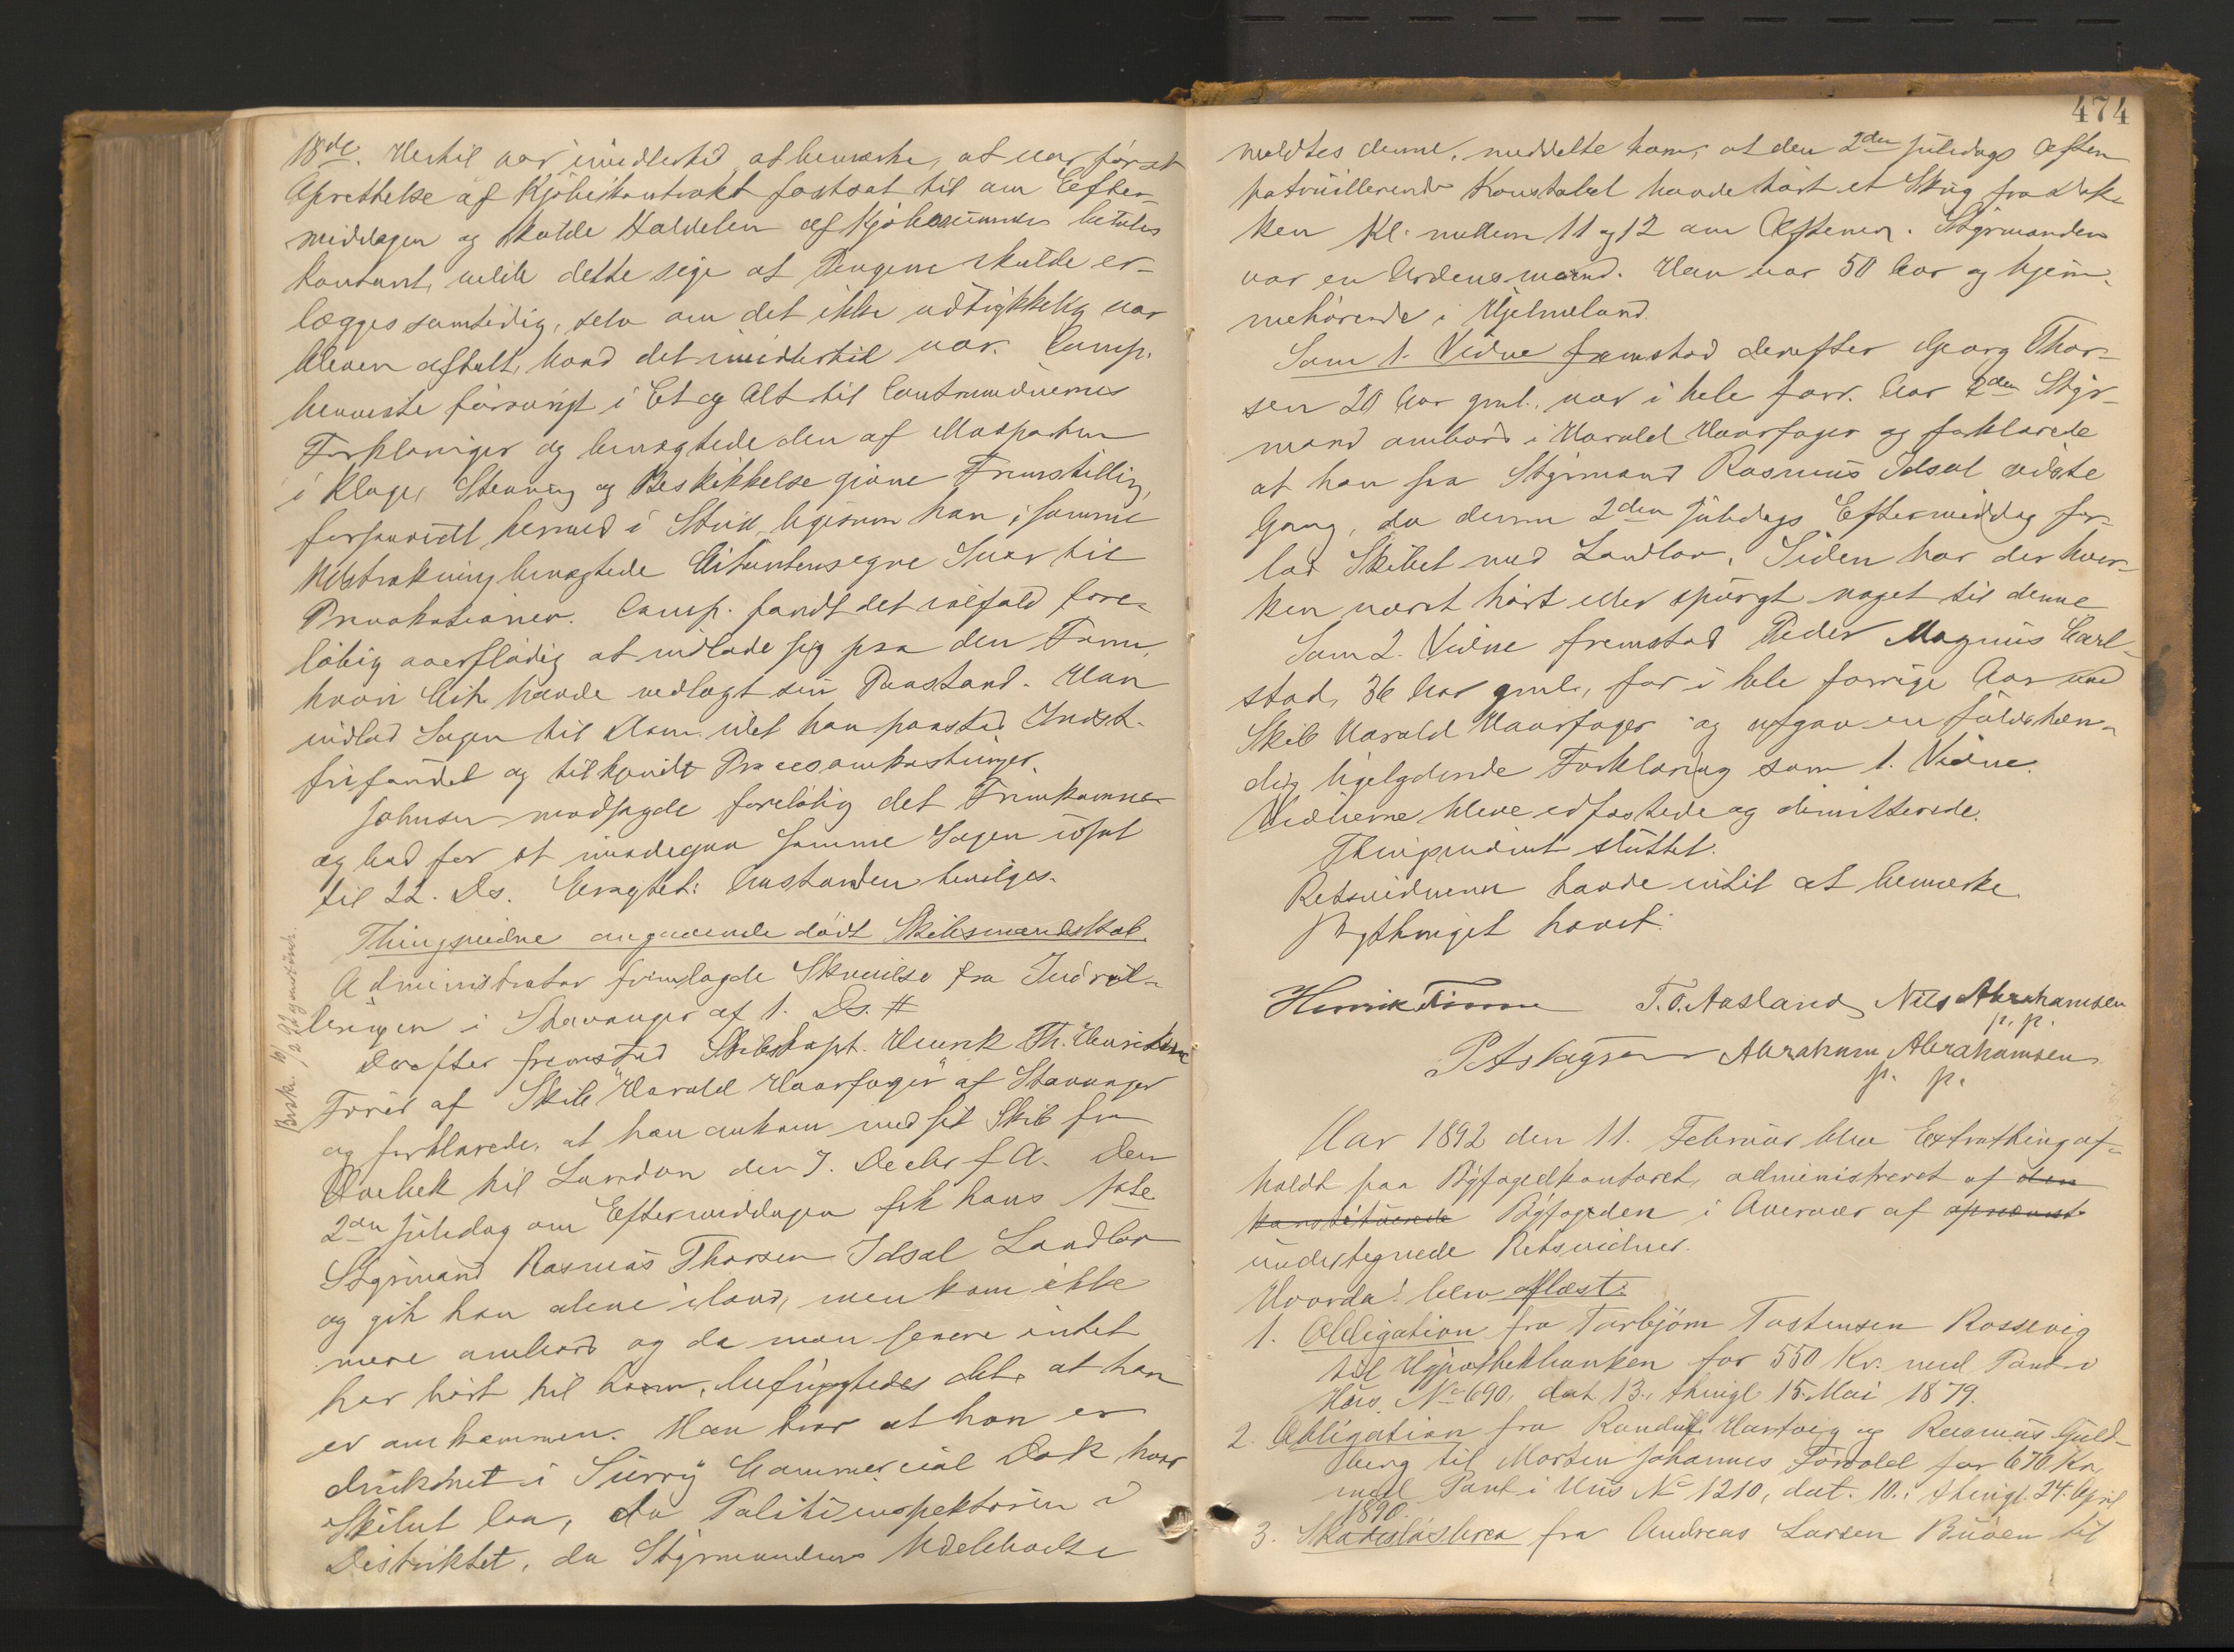 18de. Hertil var imidlertid at bemærke, at var først
Oprettelse af Kjøbekontrakt fastsat til om Efter-
middagen og skulde Halvdelen af Kjøbesummen betales
kontant, vilde dette sige at Pengene skulde er-
lægges samtidig, selv om det ikke udtrykkelig var
bleven aftalt, hvad det imidlertid var. Comp.
henviste forøvrigt i Et og Alt til Contravidnernes
Forklaringer og benægtede den af Modparten
i Klage, Stevning og Beskikkelse givne Fremstilling,
forsaavidt hermed i Strid ligesom han i samme
Udstrækning benægtede Citantens egne Svar til
Provokationer. Comp. fandt det ialfald fore-
løbig overflødig at indlade sig paa den Form,
hvori Cit. havde nedlagt sin Paastand. Han
indlod Sagen til Dom idet han paastod Indst.
frifundet og tilkjendt Procesomkostninger.
Johnsen modsagde foreløbig det Fremkomne
og bad for at imødegaa samme Sagen udsat
til 22. Ds. Eragtet: Anstanden bevilges.
Thingsvidne angaaende dødt Skibsmandskab.
Administrator fremlagde Skrivelse fra Indrul-
leringen i Stavanger af 1. Ds. #
Derefter fremstod Skibskapt. Henrik Th. Henriksen
Fører af Skib "Harald Haarfager" af Stavanger
og forklarede, at han ankom med sit Skib fra
Qvebek til London den 7. Decbr f. A. Den
2den Juledag om Eftermiddagen fik hans 1ste
Styrmand Rasmus Thorsen Idsal Landlov
og gik han alene iland, men kom ikke
mere ombord og da man senere intet
har hørt til ham, befrygtedes det, at han
er omkommen. Han tror at han er
druknet i Surry Commercial Dok, hvor
Skibet laa, da Politiinspektøren i
Distriktet, da Styrmandens Udeblivelse
Besk. 10/2 92
474
meldtes denne, meddelte ham, at den 2den Juledags Aften
patruillerende Konstabel havde hørt et Skrig fra Dok-
ken Kl. mellem 11 og 12 om Aftenen. Styrmanden
var en Ordensmand. Han var 50 Aar og hjem-
mehørende i Hjelmeland.
Som 1. Vidne fremstod derefter Georg Thor-
sen 20 Aar gml., var i hele forr. Aar 2den Styr-
mand ombord i Harald Haarfager og forklarede
at han saa Styrmand Rasmus Idsal sidste
Gang, da denne 2den Juledags Eftermiddag for-
lod Skibet med Landlov. Siden har der hver-
ken været hørt eller spurgt noget til denne
Som 2. Vidne fremstod Peder Magnus Carl-
stad, 36 Aar gml., for i hele forrige Aar med
Skib Harald Haarfager og afgav en fuldstæn-
dig ligelydende Forklaring som 1. Vidne.
Vidnerne bleve edfæstede og dimitterede.
Thingsvidnet sluttet.
Retsvidnerne havde intet at bemærke
Bythinget hævet.
Henrik Finne T. O. Aasland Nils Abrahamsen
p. p.
P Aslagsen Abraham Abrahamsen
p. p.
Aar 1892 den 11. Februar blev Extrathing af-
holdt paa Byfogedkontoret, administreret af den
konstituerede Byfogden i Overvær af opnævnt
undertegnede Retsvidner.
Hvorda! blev aflæst:
1. Obligation fra Torbjørn Tostensen Rossevig
til Hypothekbanken for 550 Kr. med Pant i
Hus No 690, dat. 13., thingl. 15. Mai 1879.
2. Obligation fra Randulf Hartvig og Rasmus Guld-
berg til Morten Johannes Førvold for 670 Kr.
med Pant i Hus No 1210, dat. 10., thingl. 24. April
1890.
3. Skadesløsbrev fra Andreas Larsen Buøen til